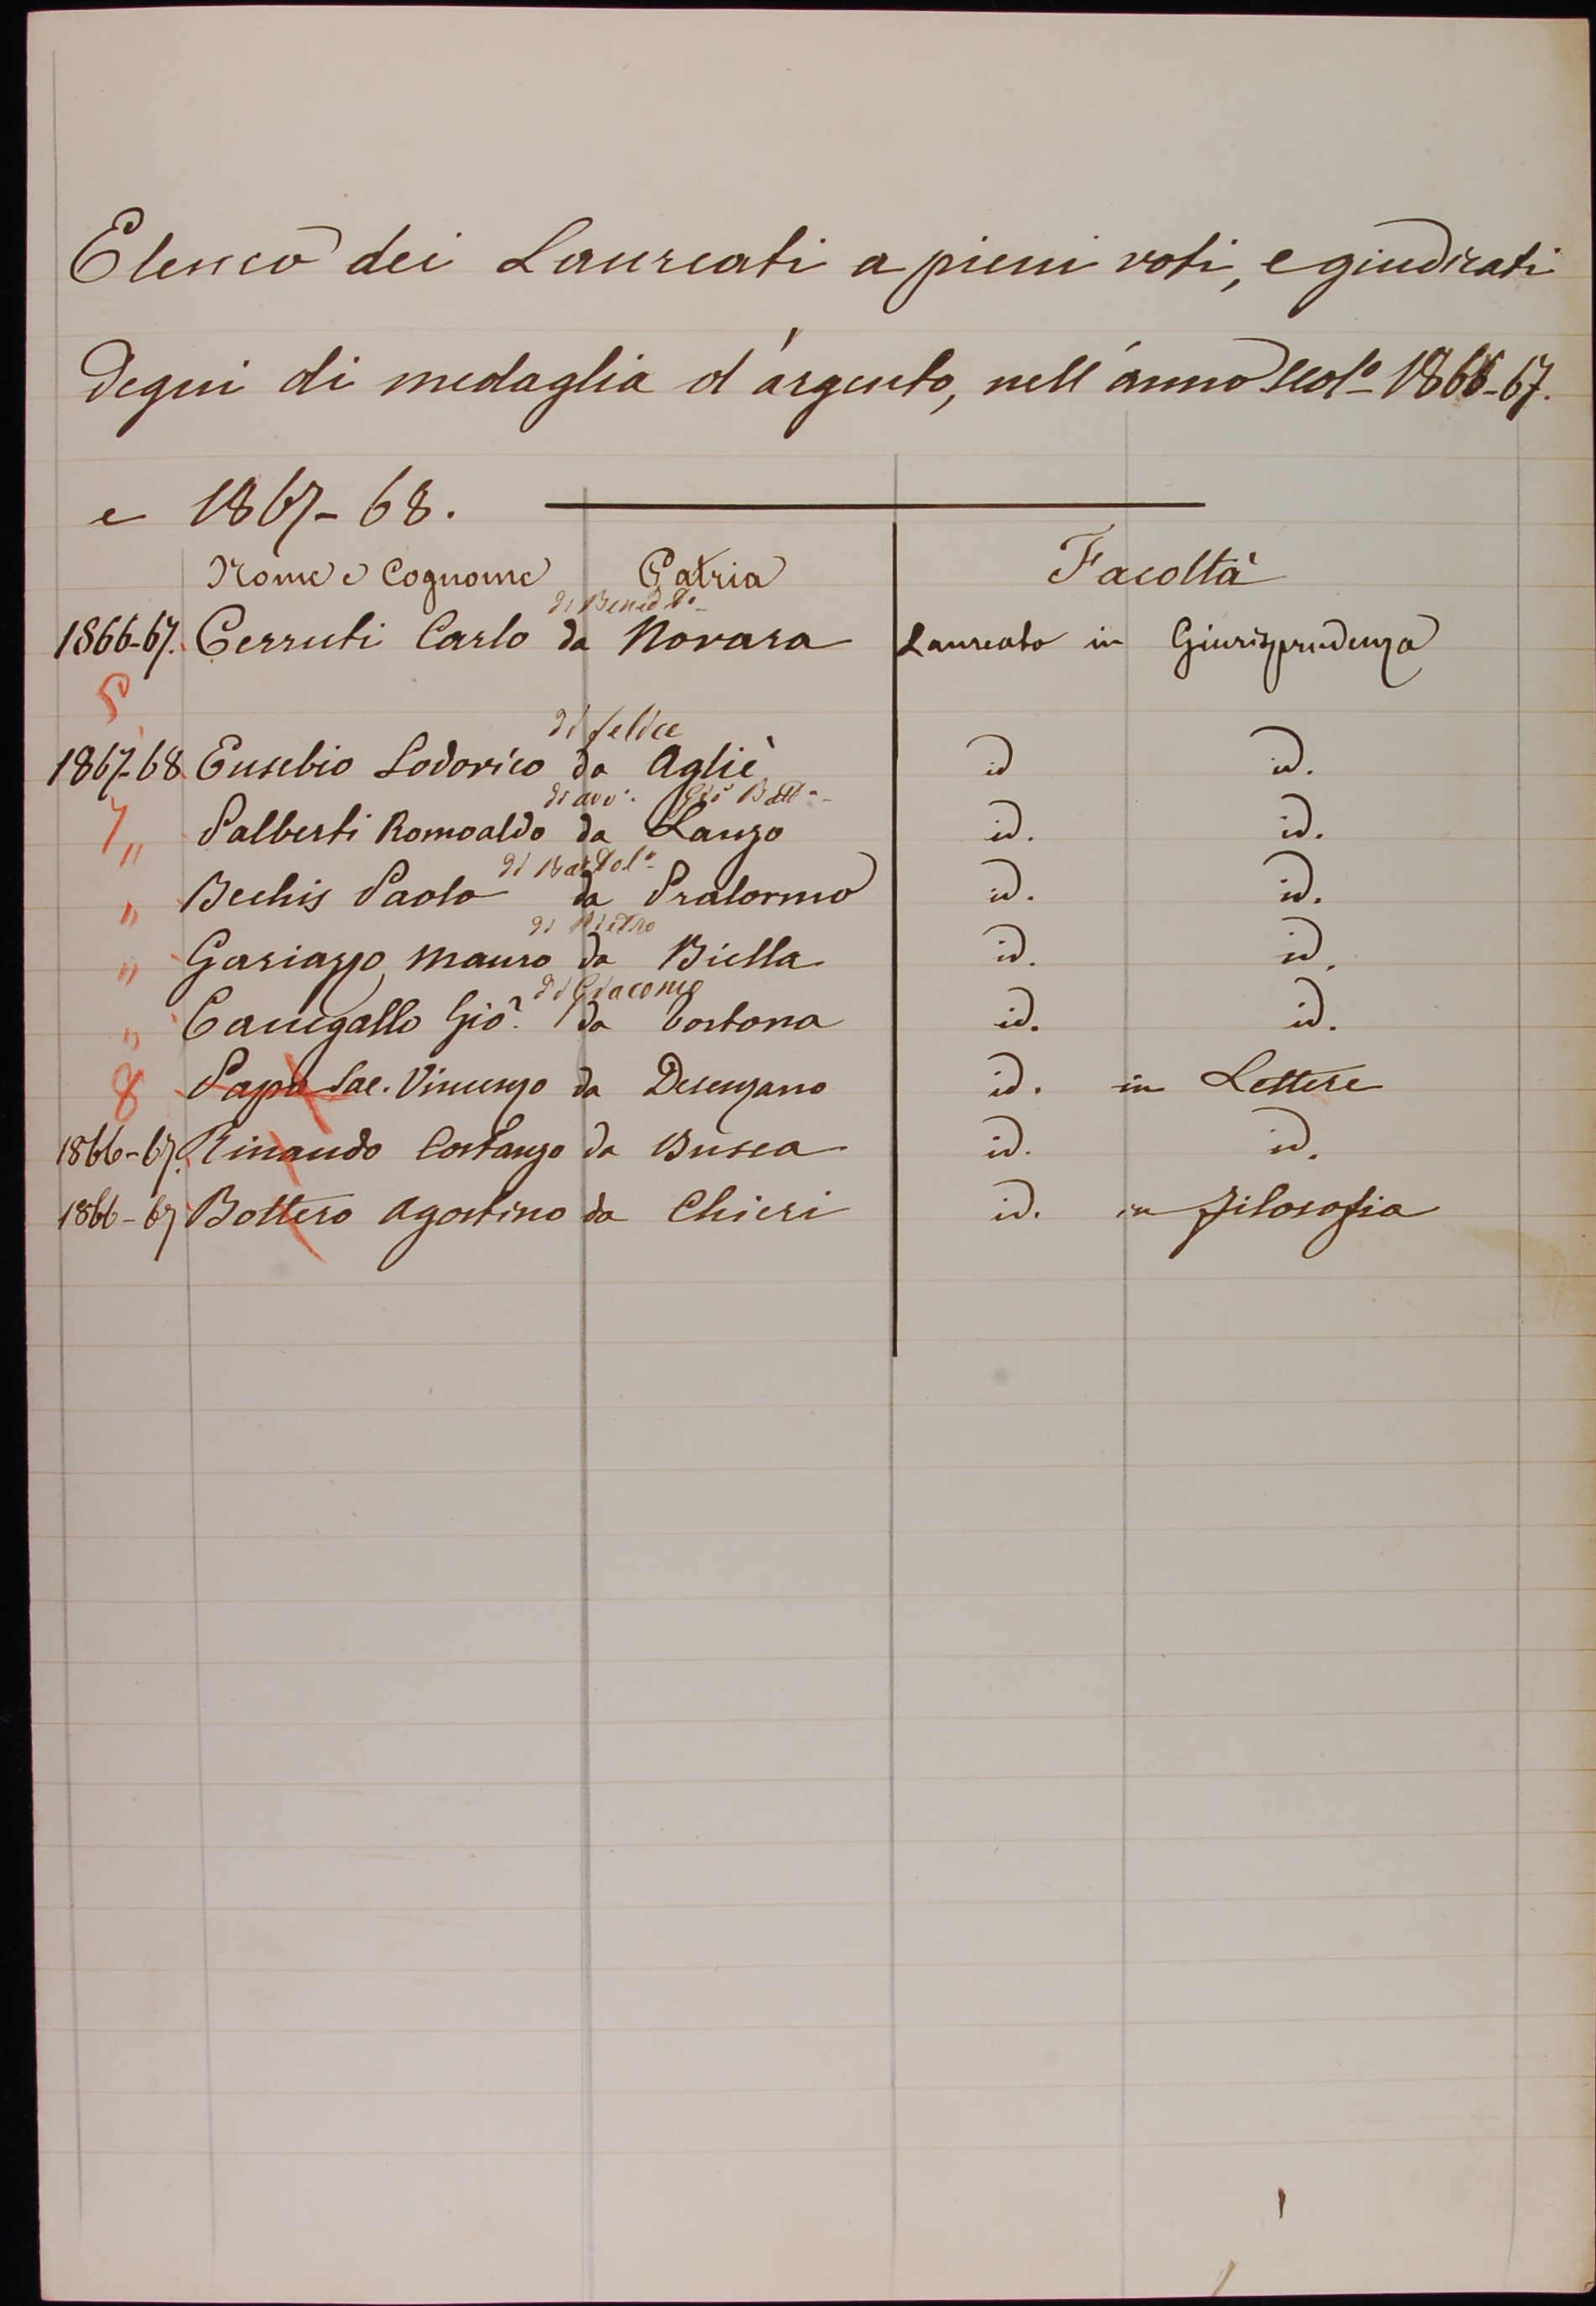 Elenco dei Laureati a pieni voti, e giudicati
degni di medaglia d'argento, nell'anno scol.o 1866-67.
e 1867-68.
Nome e Cognome Patria Facoltà
di Bened.to
1866-67. Cerruti Carlo da Novara Laureato in Giurisprudenza
di felice
1867-68 Eusebio Lodovico da Agliè id id.
di avv. Gio Batt.a
7 " Palberti Romoaldo da Lanzo id. id.
di Bartol.o
" Bechis Paolo da Pralormo id. id.
di Pietro
" Gariazzo Mauro da Biella id. id.
di Giacomo
" Canegallo Gio. da Tortona id. id.
8 Papa Sac. Vincenzo da Desenzano id. in Lettere
1866-67. Rinaudo Costanzo da Busca id. id.
1866-67 Bottero Agostino da Chieri id. in filosofia